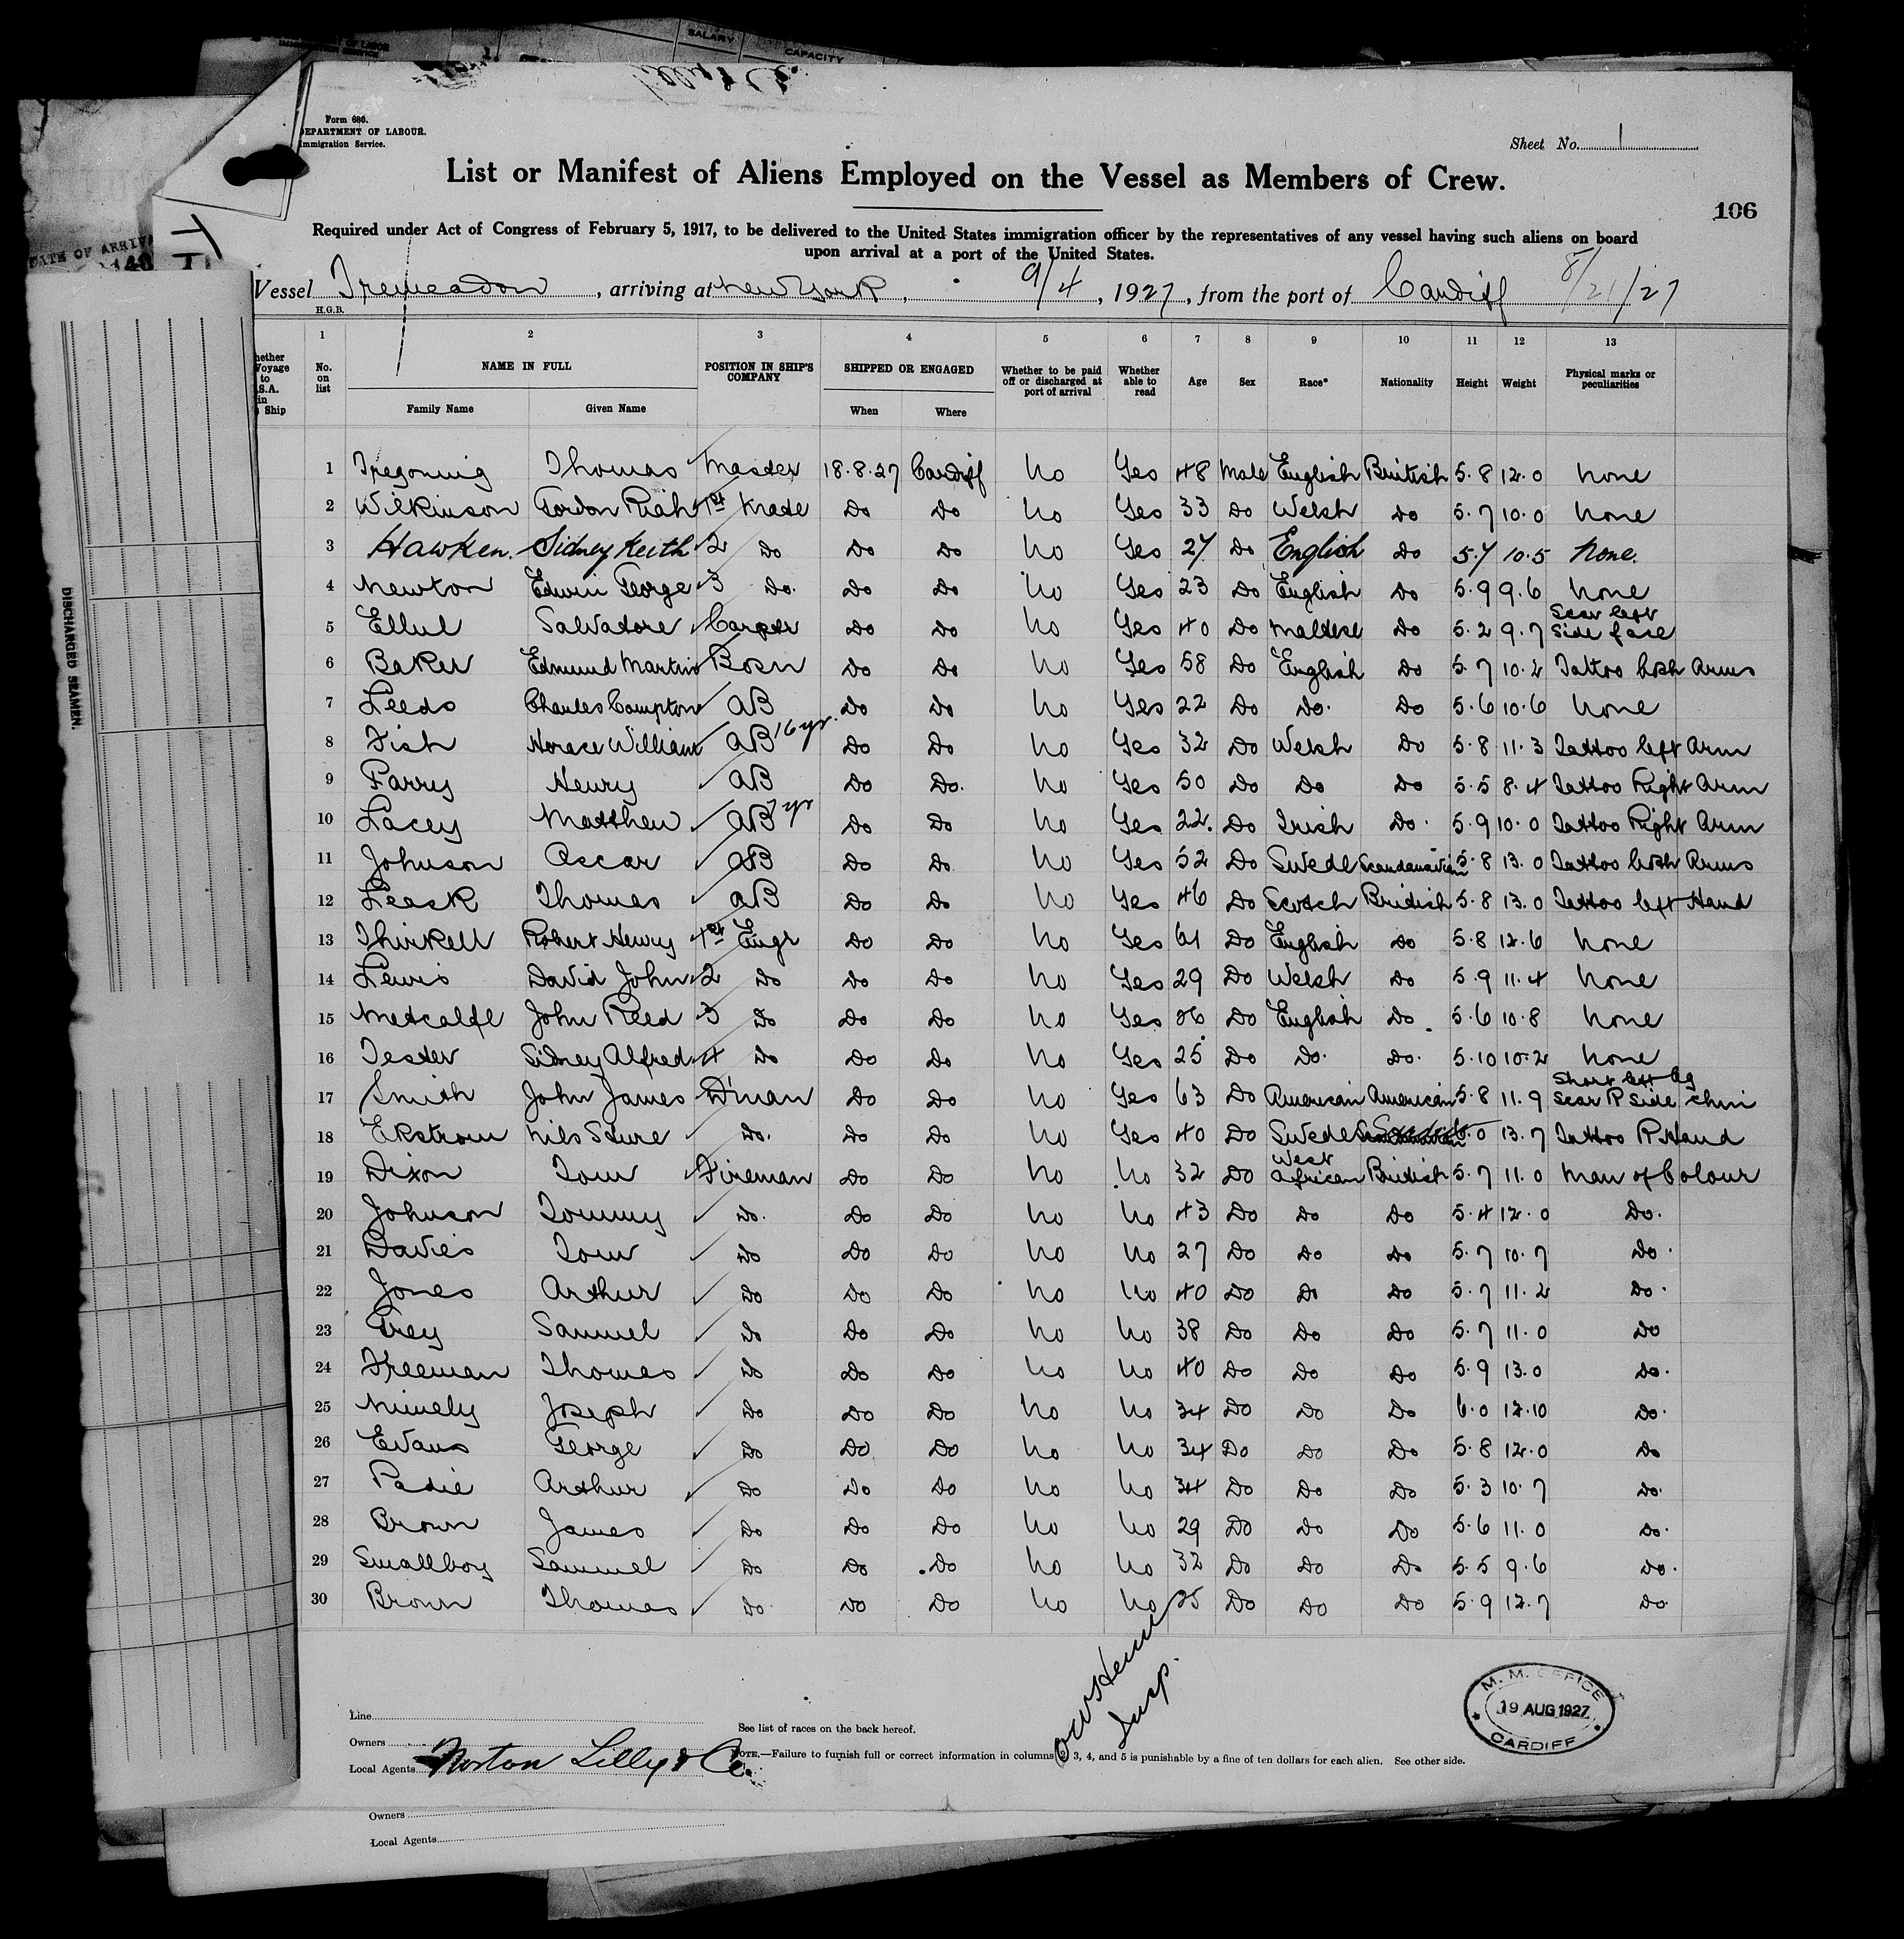 SALARY
CAPACITY
Form 686.
DEPARTMENT OF LABOUR.
Immigration Service.
Sheet No. 1
List or Manifest of Aliens Employed on the Vessel as Members of Crew.
106
Required under Act of Congress of February 5, 1917, to be delivered to the United States immigration officer by the representatives of any vessel having such aliens on board
upon arrival at a port of the United States.
DATE OF ARRIVA
Vessel Tremeadow, arriving at New York, 9/4, 1927, from the port of Cardiff 8/21/27
H.G.B.
1 2 3 4 5 6 7 8 9 10 11 12 13
hether Voyage to S.A. in Ship
No. on list NAME IN FULL POSITION IN SHIP'S COMPANY SHIPPED OR ENGAGED Whether to be paid off or discharged at port of arrival Whether able to read Age Sex Race* Nationality Height Weight Physical marks or peculiarities
Family Name Given Name When Where
1 Tregoning Thomas Master 18.8.27 Cardiff No Yes 48 Male English British 5.8 12.0 None
2 Wilkinson Gordon 1st Mate Do Do No Yes 33 Do Welsh Do 5.7 10.0 None
3 Hawken. Sidney Keith 2 Do Do Do No Yes 27 Do English Do 5.7 10.5 None.
4 Newton Edwin George 3 Do. Do Do No Yes 23 Do English Do 5.9 9.6 None
5 Ellul Salvatore Carptr Do Do No Yes 40 Do Maltese Do 5.2 9.7 Scar left side face
6 Baker Edmund Martin Bosn Do Do No Yes 58 Do English Do 5.7 10.2 Tattoo both Arms
7 Leeds Charles Compton AB Do Do No Yes 22 Do Do. Do 5.6 10.6 None
8 Fish Horace William AB 16 yr. Do Do No Yes 32 Do Welsh Do 5.8 11.3 Tattoo left Arm
9 Parry Henry AB Do Do. No Yes 50 Do Do Do 5.5 8.4 Tattoo Right Arm
10 Lacey Matthew AB yr Do Do No Yes 22. Do Irish Do. 5.9 10.0 Tattoo Right Arm
11 Johnson Oscar AB Do Do. No Yes 52 Do Swede Scandanavian 5.8 13.0 Tattoo both Arms
12 Leask Thomas AB Do Do No Yes 46 Do Scotch British 5.8 13.0 Tattoo left Hand
13 Thirkell Robert Henry 1st Engr Do Do No Yes 61 Do English Do 5.8 12.6 None
14 Lewis David John 2 Do Do Do No Yes 29 Do Welsh Do 5.9 11.4 None
15 Metcalfe John Reed 3 Do Do Do No Yes Do English Do 5.6 10.8 None
16 Tester Sidney Alfred 4 Do Do Do No Yes 25 Do Do. Do. 5.10 10.2 None
17 Smith John James D'man Do Do No Yes 63 Do American American 5.8 11.9 Short left leg Scar R Side chin
18 Ekstrom Nils Sture Do. Do Do No Yes 40 Do Swede 13.7 Tattoo R Hand
19 Dixon Tom Fireman Do Do No No 32 Do West African British 5.7 11.0 Man of Colour
20 Johnson Tommy Do. Do Do No No 43 Do Do Do 5.4 12.0 Do.
21 Davies Tom Do Do Do No No 27 Do Do Do 5.7 10.7 Do.
22 Jones Arthur Do Do Do No No 40 Do Do Do 5.7 11.2 Do.
23 Grey Samuel Do Do Do No No 38 Do Do Do 5.7 11.0 Do
24 Freeman Thomas Do Do Do No No 40 Do Do Do 5.9 13.0 Do.
25 Nimely Joseph Do Do Do No No 34 Do Do Do 6.0 12.10 Do.
26 Evans George Do Do Do No No 34 Do Do Do 5.8 12.0 Do
27 Padie Arthur Do Do Do No No 34 Do Do Do 5.3 10.7 Do.
28 Brown James Do Do Do No No 29 Do Do Do 5.6 11.0 Do.
29 Smallboy Sammuel Do Do Do No No 32 Do Do Do 5.5 9.6 Do.
30 Brown Thomas Do. Do Do No No 35 Do Do Do 5.9 12.7 Do
DISCHARGED SEAMEN.
Insp.
M. M. OFFICE
19 AUG 1927
CARDIFF
Line
See list of races on the back hereof.
Owners
NOTE.—Failure to furnish full or correct information in columns 2, 3, 4, and 5 is punishable by a fine of ten dollars for each alien. See other side.
Local Agents Norton Lilly & Co.
Owners
Local Agents